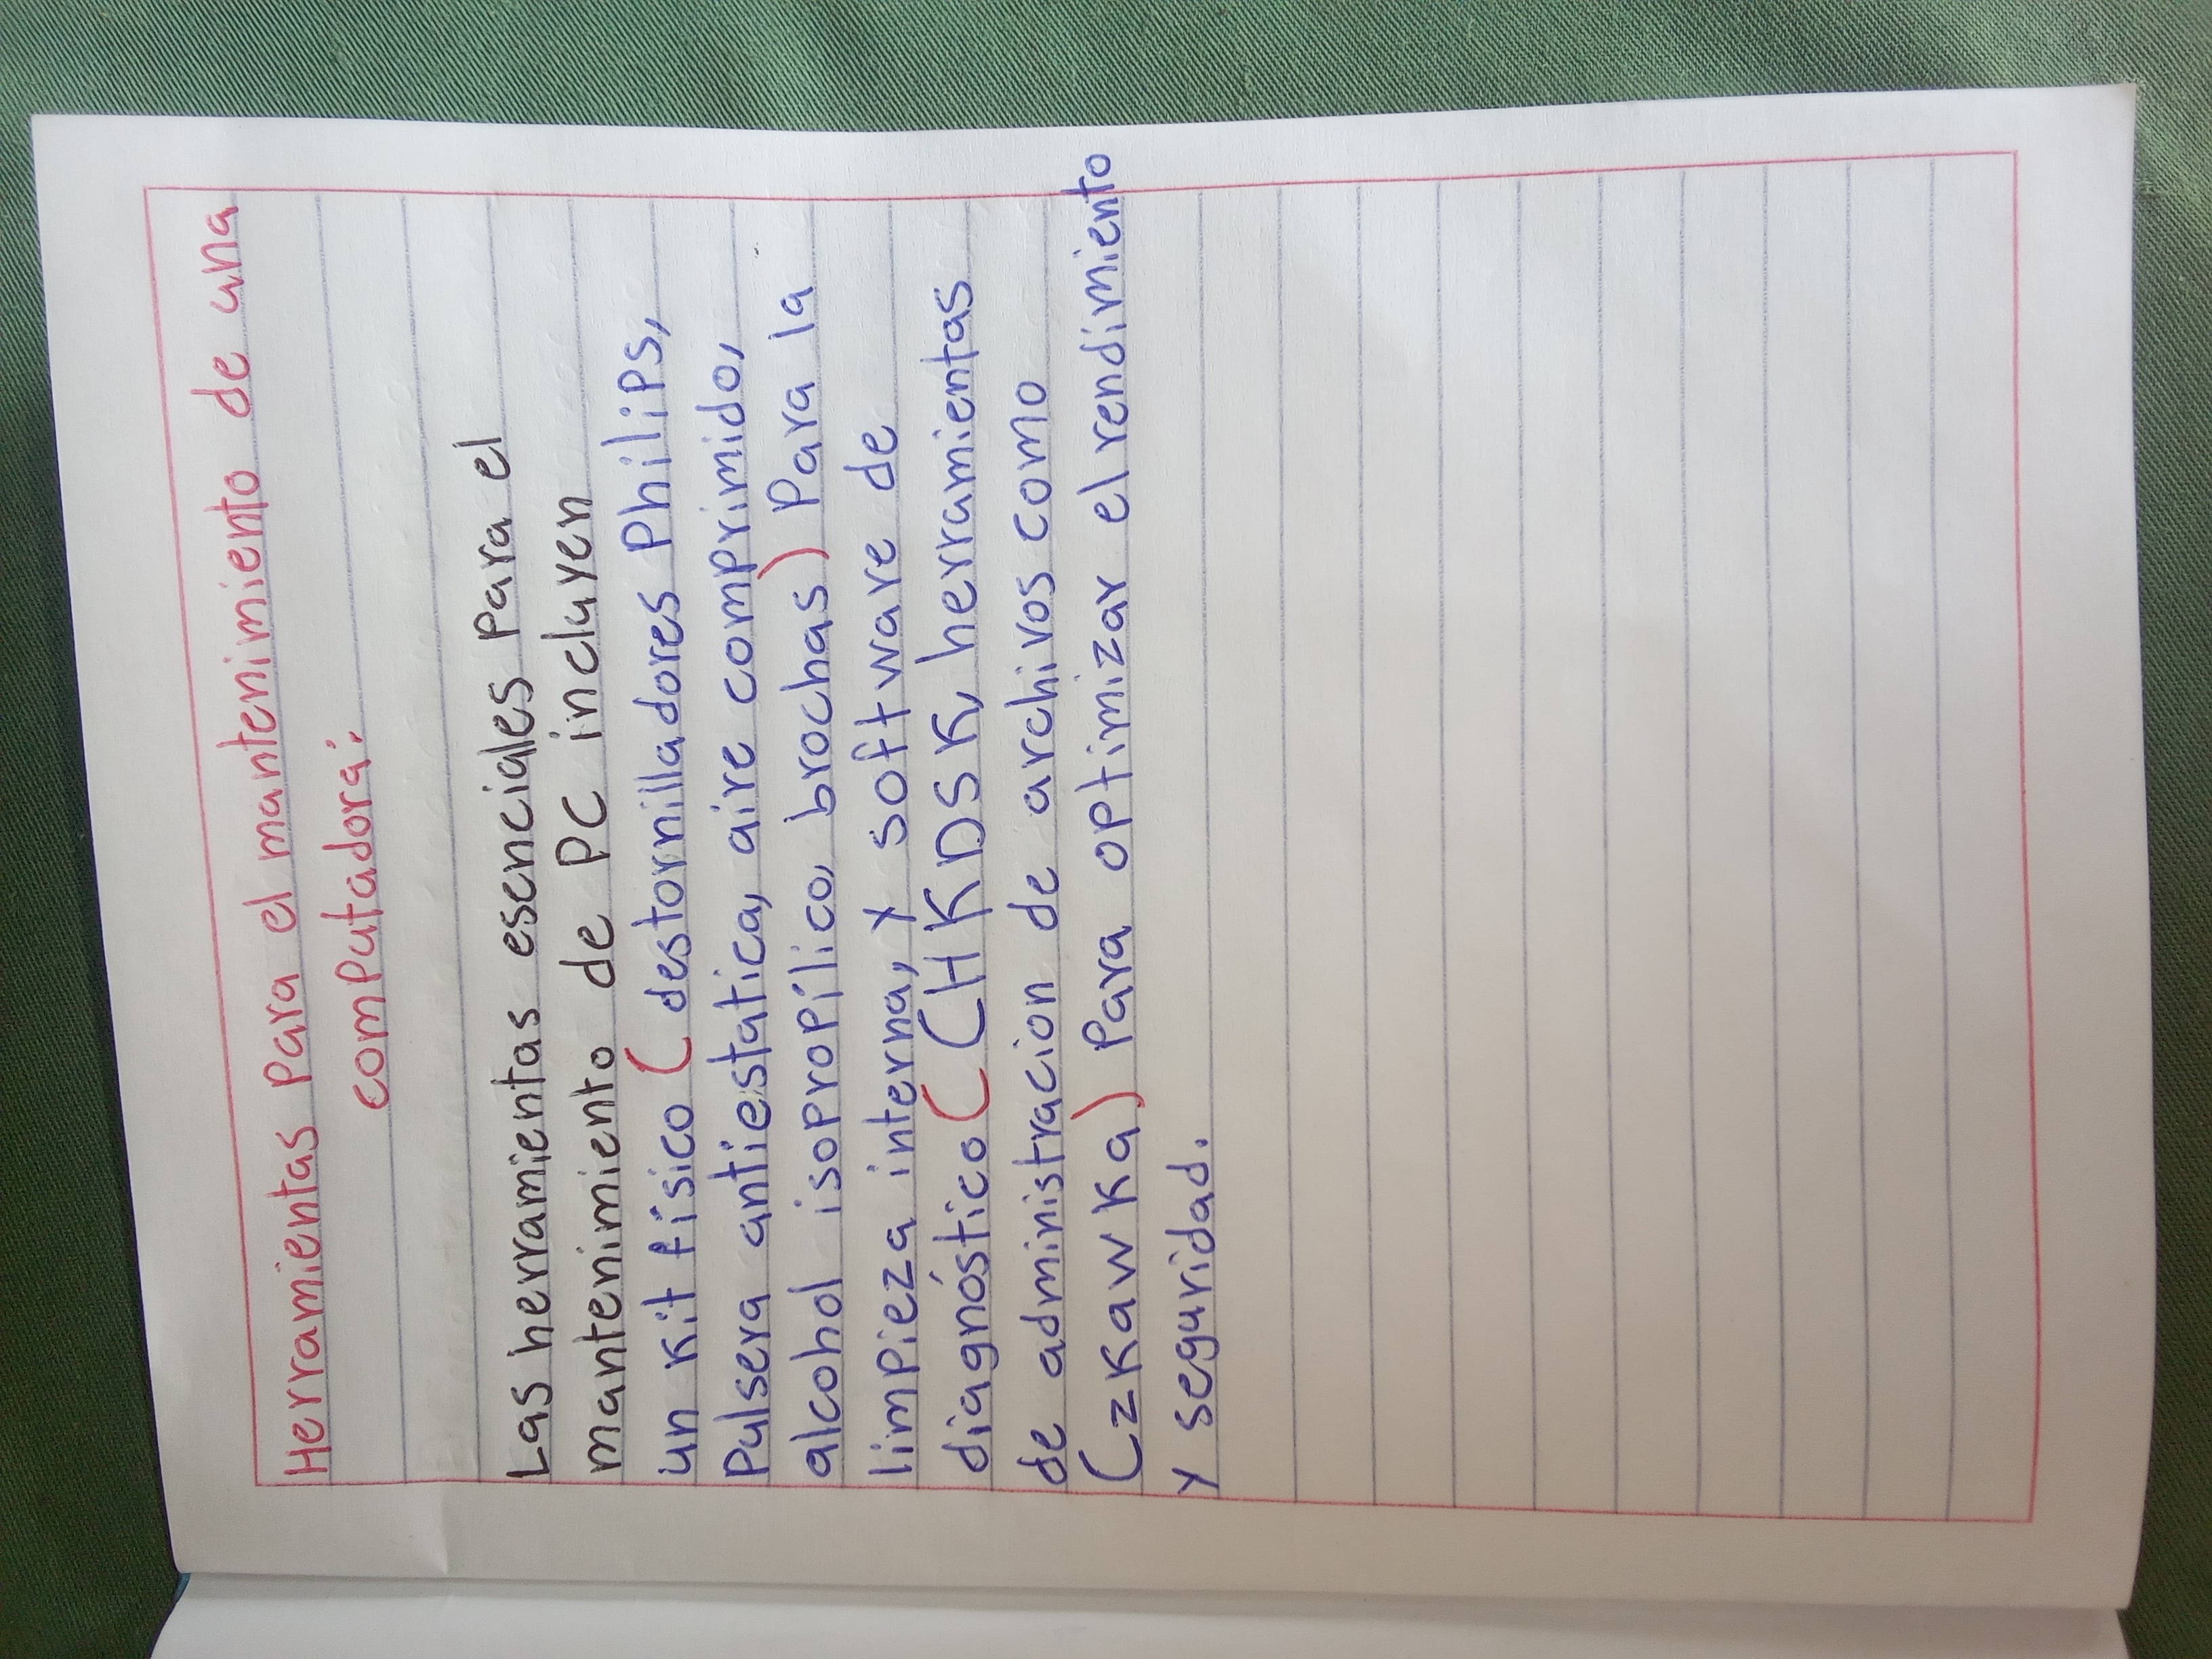 Herramientas Para el mantenimiento de una
computadora:
Las herramientas esenciales Para el
mantenimiento de PC incluyen
un kit físico (destornilladores Philips,
Pulsera antiestatica, aire comprimido,
alcohol isopropílico, brochas) Para la
limpieza interna, y software de
diagnóstico (CHKDSK, herramientas
de administracion de archivos como
Czkawka) Para optimizar el rendimiento
y seguridad.